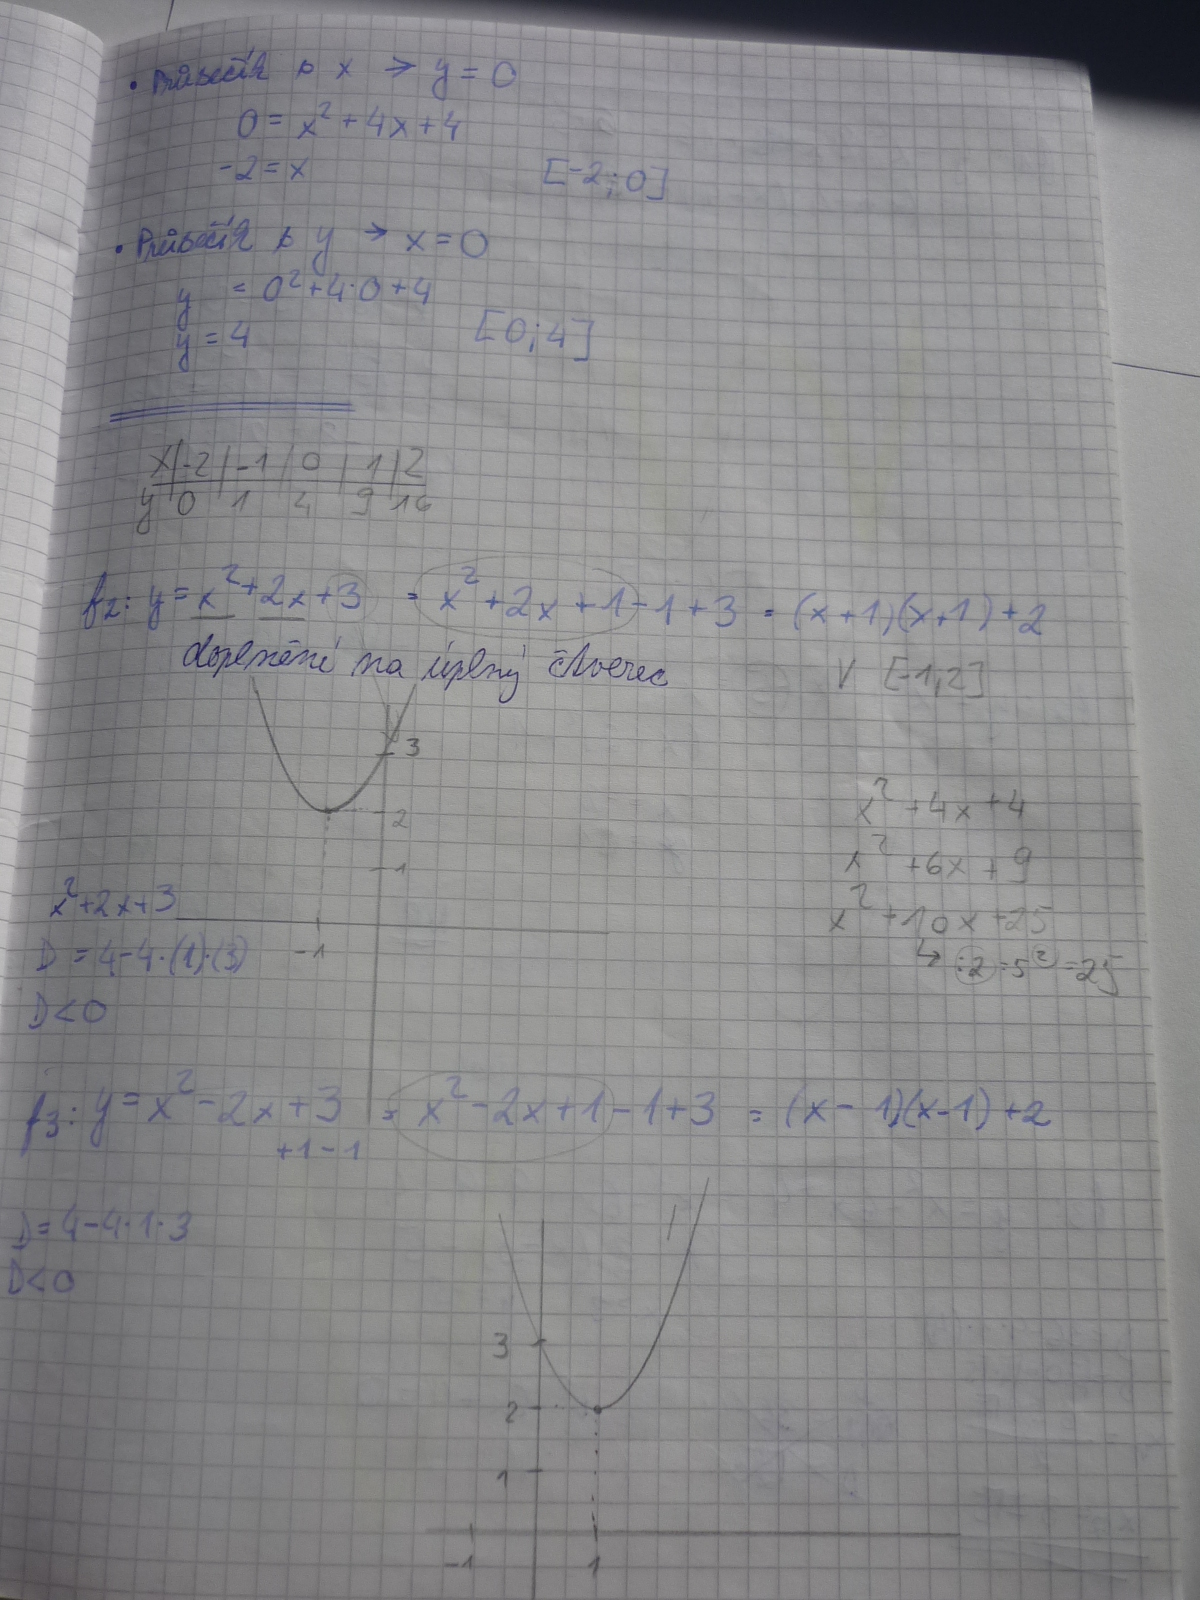 • Průsečík s x → y = 0
0 = x² + 4x + 4
-2 = x [-2; 0]
• Průsečík s y → x = 0
y = 0² + 4·0 + 4
y = 4 [0; 4]
x | -2 | -1 | 0 | 1 | 2
y 0 1 4 9 16
f2: y = x² + 2x + 3 = x² + 2x + 1 - 1 + 3 = (x + 1)(x + 1) + 2
doplnění na úplný čtverec V [-1; 2]
3
2
1
-1
x² + 4x + 4
x² + 6x + 9
x² + 10x + 25
↳ :2 = 5² = 25
x² + 2x + 3
D = 4 - 4·(1)·(3)
D < 0
f3: y = x² - 2x + 3 = x² - 2x + 1 - 1 + 3 = (x - 1)(x - 1) + 2
+1 - 1
D = 4 - 4·1·3
D < 0
3
2
1
-1 1